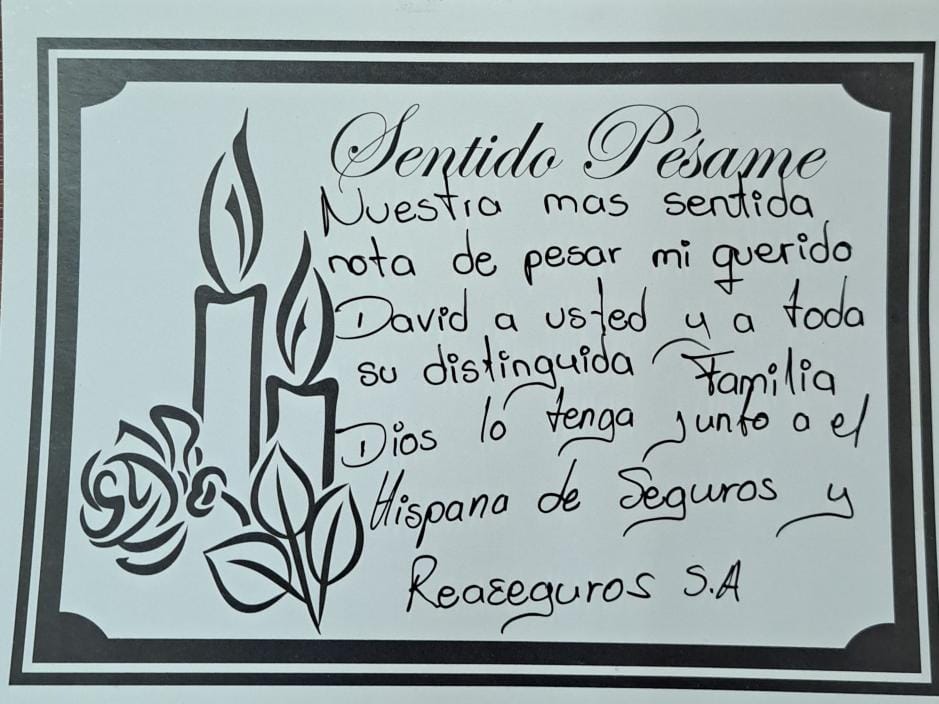 Sentido Pésame
Nuestra mas sentida
nota de pesar mi querido
David a usted y a toda
su distinguida Familia
Dios lo tenga junto a el
Hispana de Seguros y
Reaseguros S.A